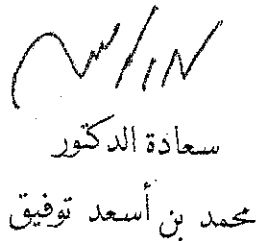 سعادة الدكتور
محمد بن أسعد توفيق